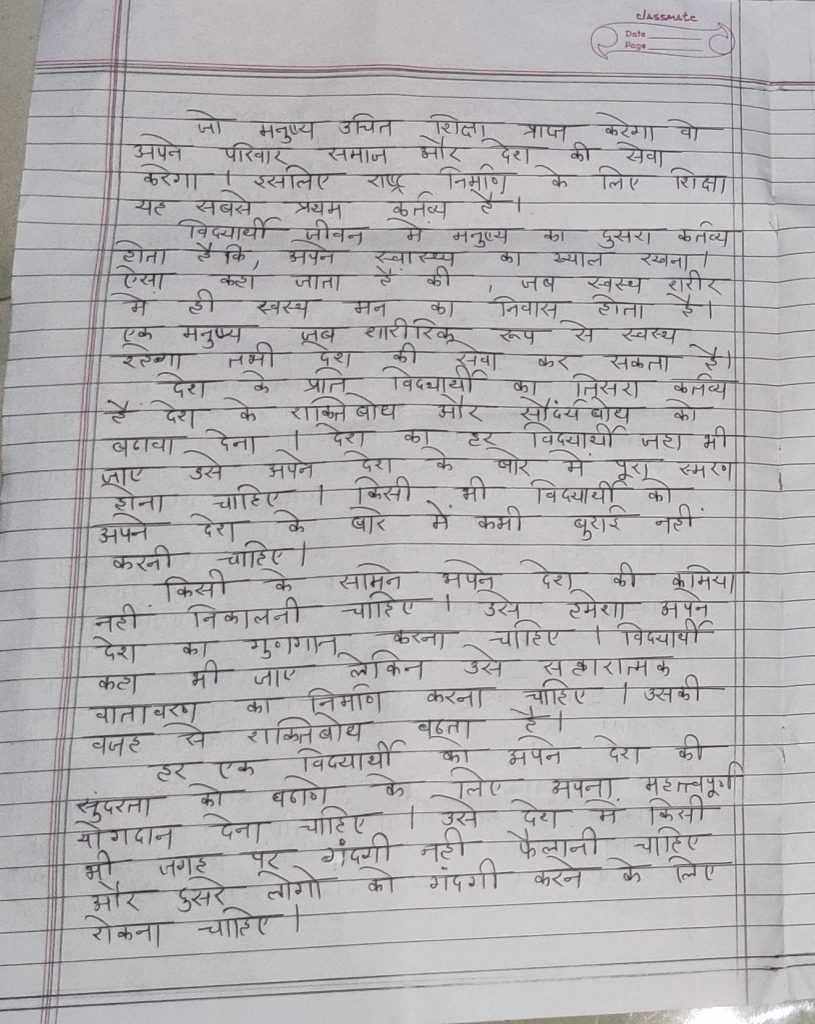 classmate
Date
Page
जो मनुष्य उचित शिक्षा प्राप्त करेगा वो
अपने परिवार समाज और देश की सेवा
करेगा । इसलिए राष्ट्र निर्माण के लिए शिक्षा
यह सबसे प्रथम कर्तव्य है ।
विद्यार्थी जीवन में मनुष्य का दुसरा कर्तव्य
होता है कि, अपने स्वास्थ्य का ख्याल रखना ।
ऐसा कहा जाता है की , जब स्वस्थ शरीर
में ही स्वस्थ मन का निवास होता है ।
एक मनुष्य जब शारीरिक रूप से स्वस्थ
रहेगा तभी देश की सेवा कर सकता है ।
देश के प्रति विद्यार्थी का तिसरा कर्तव्य
है देश के शक्तिबोध और सौंदर्यबोध को
बढावा देना । देश का हर विद्यार्थी जहा भी
जाए उसे अपने देश के बारे में पूरा स्मरण
होना चाहिए । किसी भी विद्यार्थी को
अपने देश के बारे में कभी बुराई नहीं
करनी चाहिए ।
किसी के सामने अपने देश की कमिया
नहीं निकालनी चाहिए । उसे हमेशा अपने
देश का गुणगान करना चाहिए । विद्यार्थी
कहा भी जाए लेकिन उसे सकारात्मक
वातावरण का निर्माण करना चाहिए । उसकी
वजह से शक्तिबोध बढता है ।
हर एक विद्यार्थी को अपने देश की
सुंदरता को बढाणे के लिए अपना महत्त्वपूर्ण
योगदान देना चाहिए । उसे देश में किसी
भी जगह पर गंदगी नही फैलानी चाहिए
और दुसरे लोगो को गंदगी करने के लिए
रोकना चाहिए ।